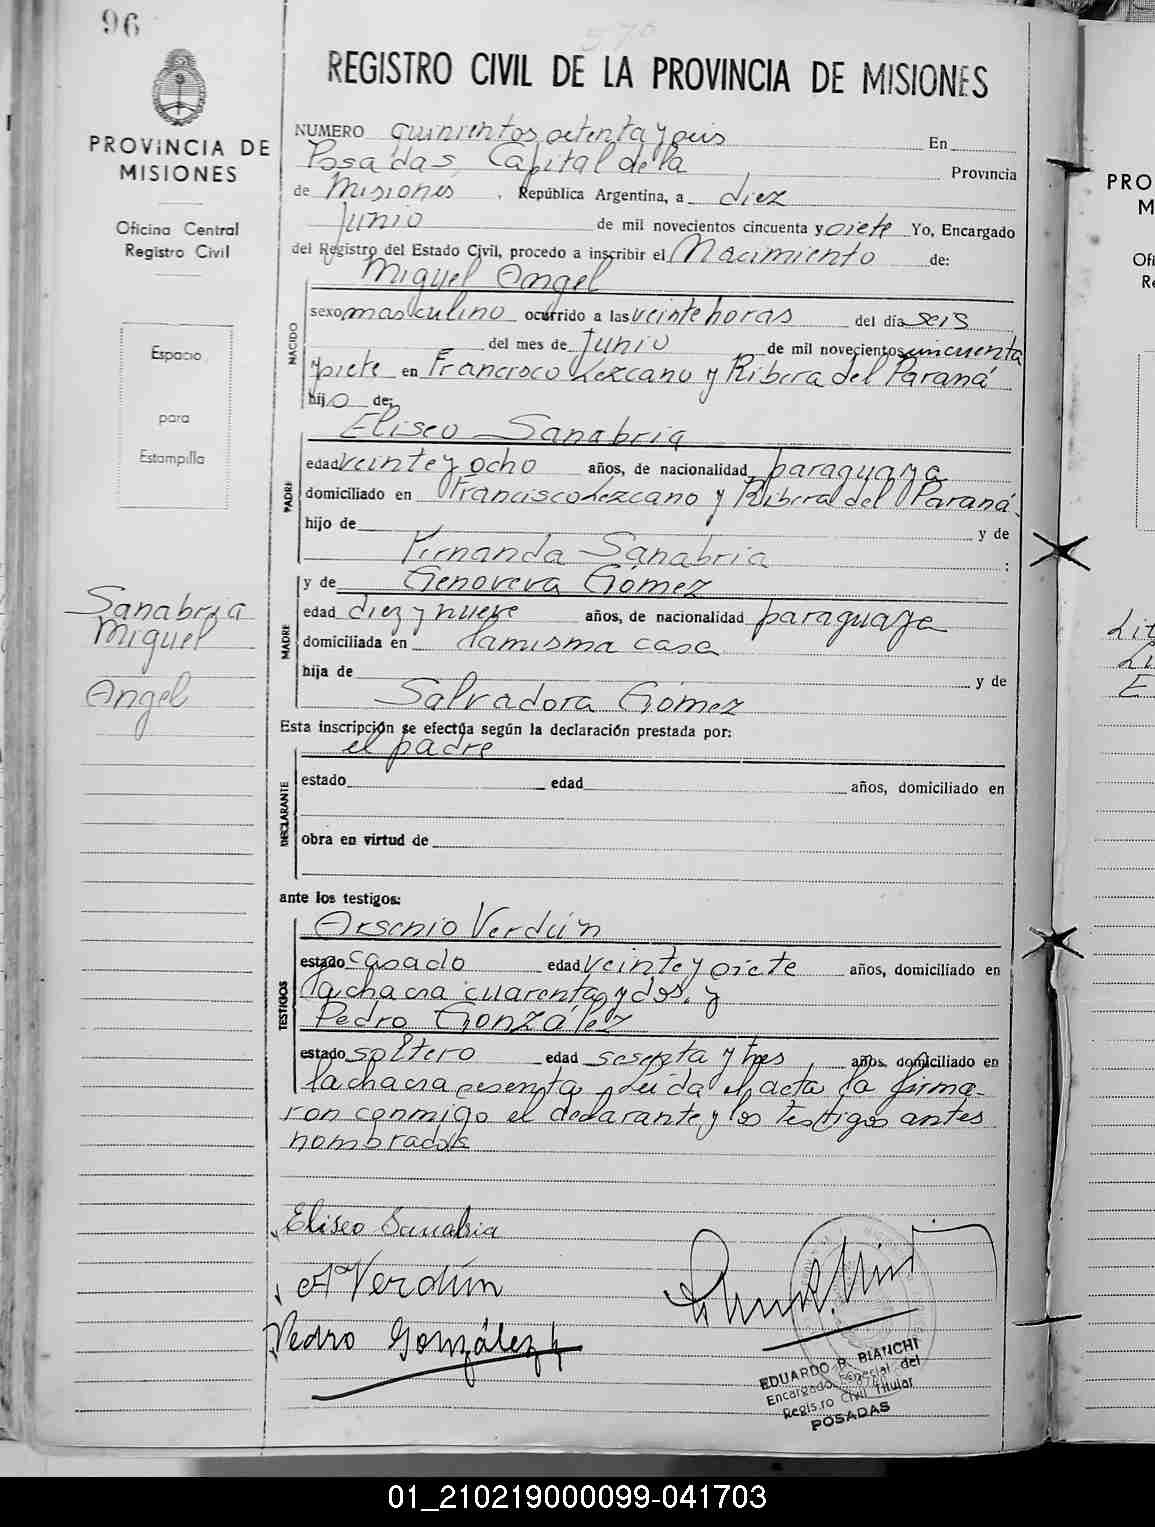 96
PROVINCIA DE
MISIONES
Oficina Central
Registro Civil
Espacio
para
Estampilla
Sanabria
Miguel
Angel
REGISTRO CIVIL DE LA PROVINCIA DE MISIONES
NUMERO quinientos setenta y seis En
Posadas, Capital de la Provincia
de Misiones, República Argentina, a diez
Junio de mil novecientos cincuenta y siete Yo, Encargado
del Registro del Estado Civil, procedo a inscribir el Nacimiento de:
Miguel Angel
NACIDO
sexo masculino ocurrido a las veinte horas del día seis
del mes de Junio de mil novecientos cincuenta
y siete en Francisco Lezcano y Ribera del Paraná
hijo de:
Eliseo Sanabria
PADRE
edad veinte y ocho años, de nacionalidad paraguaya
domiciliado en Francisco Lezcano y Ribera del Paraná.
hijo de y de
Sanabria ;
y de Genoveva Gómez
MADRE
edad diez y nueve años, de nacionalidad paraguaya
domiciliada en la misma casa
hija de y de
Salvadora Gómez
Esta inscripción se efectúa según la declaración prestada por:
el padre
DECLARANTE
estado edad años, domiciliado en
obra en virtud de
ante los testigos:
Arsenio Verdún
TESTIGOS
estado casado edad veinte y siete años, domiciliado en
la chacra cuarenta y dos, y
Pedro González
estado soltero edad sesenta y tres años, domiciliado en
la chacra sesenta, Leída el acta la firma-
ron conmigo el declarante y los testigos antes
nombrados
Eliseo Sanabria
A Verdún
Pedro González
EDUARDO R. BIANCHI
Encargado Especial del
Registro Civil Titular
POSADAS
PRO
M
Ofi
Re
01_210219000099-041703